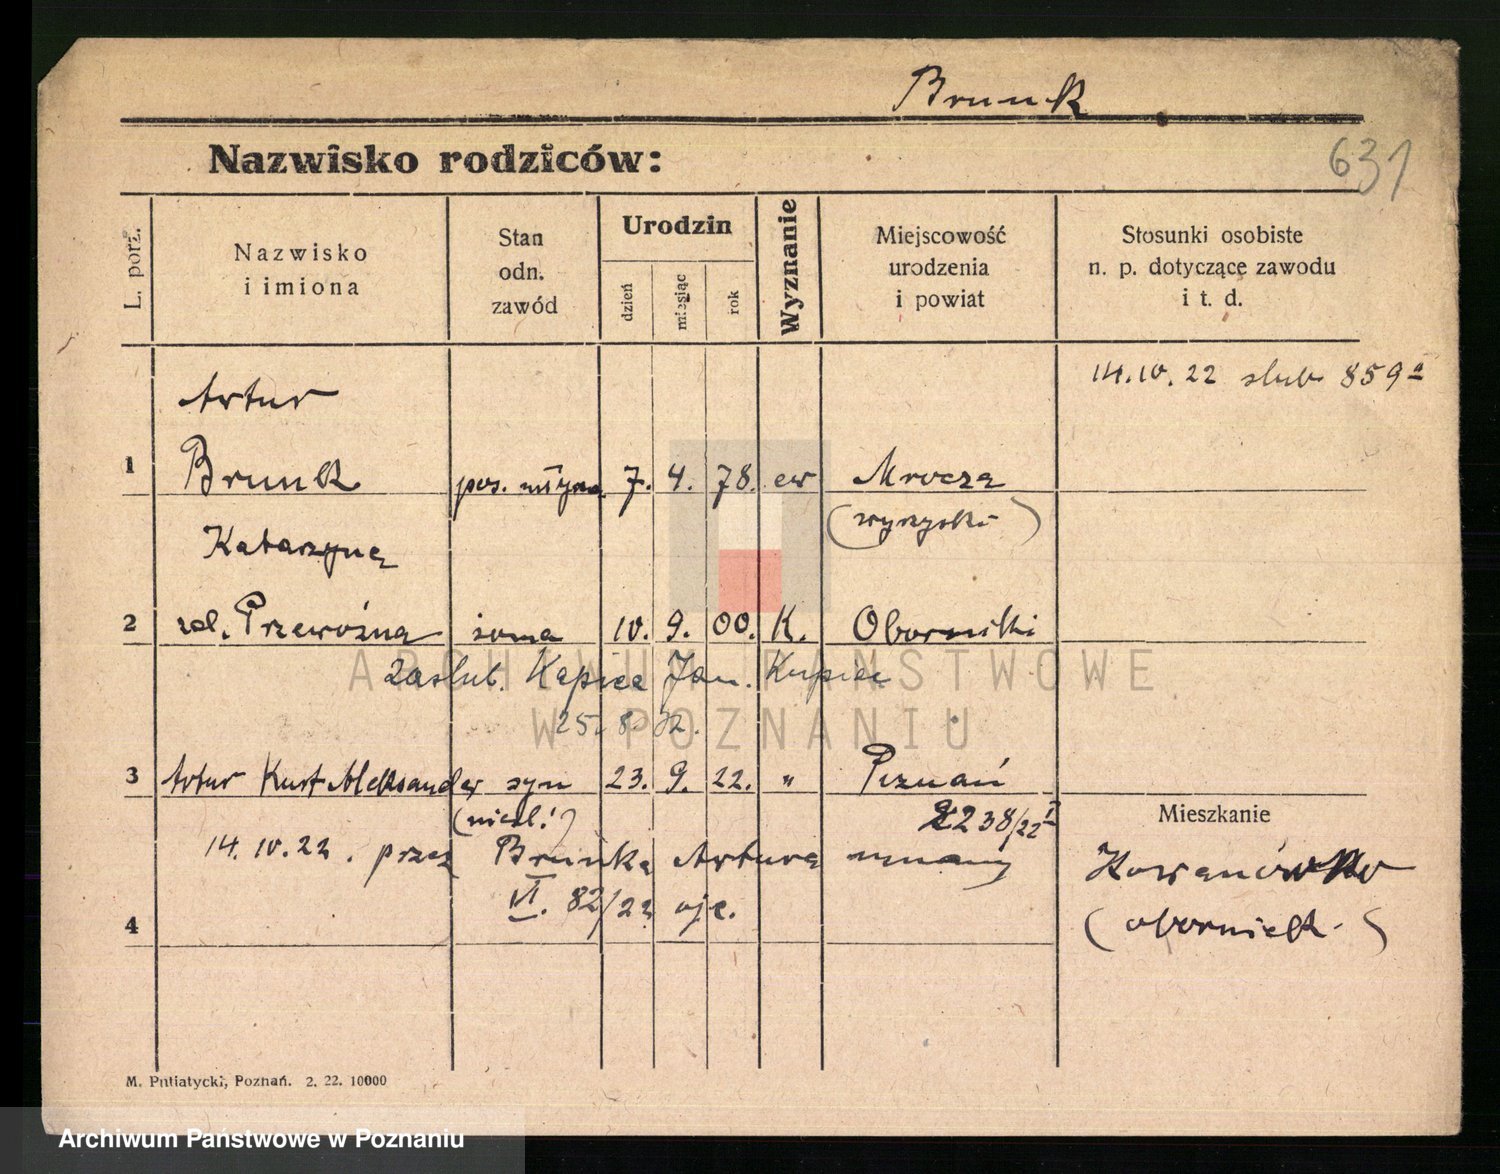 Brunk
Nazwisko rodziców:
631
L. porz.
Nazwisko
i imiona
Stan
odn.
zawód
Urodzin
dzień
miesiąc
rok
Wyznanie
Miejscowość
urodzenia
i powiat
Stosunki osobiste
n. p. dotyczące zawodu
i t. d.
14.10.22 slub 859
Artur
1 Brunk pos. młyna 7. 4. 78. ew Mrocza
(wyrzyski)
Katarzyna
2 zd. Przewoźna żona 10. 9. 00. K. Oborniki
zaślub. Kapica Jan. Kupiec
25. 8 32.
3 Artur Kurt Aleksander syn 23. 9. 22. " Poznań
(nieśl!) 2238/22 I
Mieszkanie
14.10.22. przez Brunka Artura uznany
Kowanówko
VI. 82/22 ojc.
(obornick.)
4
M. Putiatycki, Poznań. 2. 22. 10000
ARCHIWUM PAŃSTWOWE
W POZNANIU
Archiwum Państwowe w Poznaniu